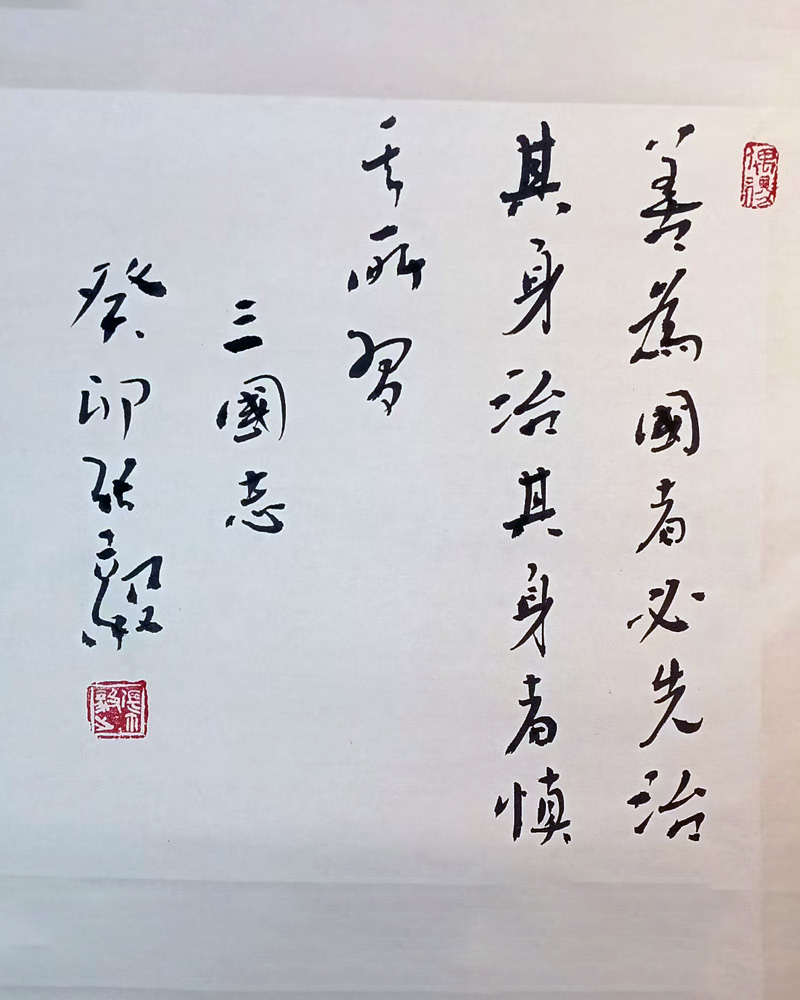 善為國者必先治
其身治其身者慎
其所習
三國志
癸卯張毅